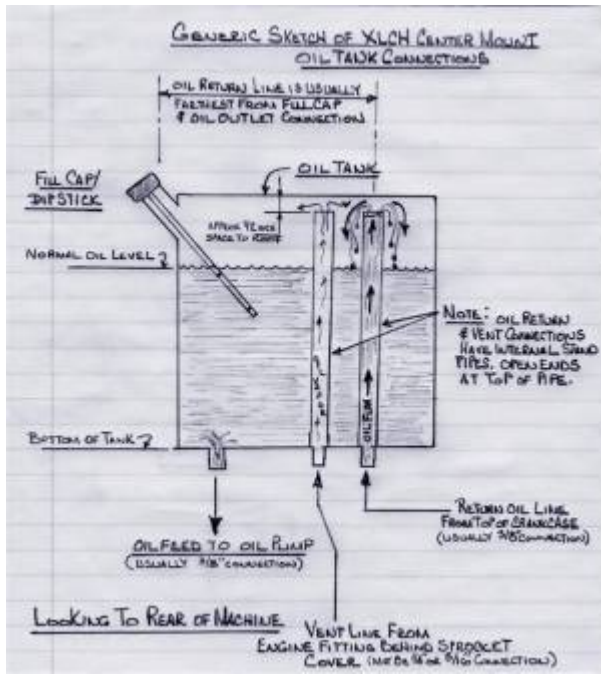 GENERIC SKETCH OF XLCH CENTER MOUNT
OIL TANK CONNECTIONS
OIL RETURN LINE IS USUALLY
FARTHEST FROM FILL CAP
& OIL OUTLET CONNECTION
OIL TANK
FILL CAP/
DIPSTICK
SPACE TO
NORMAL OIL LEVEL
NOTE: OIL RETURN
& VENT CONNECTIONS
HAVE INTERNAL STAND
PIPES. OPEN ENDS
AT TOP OF PIPE.
OIL FLOW
BOTTOM OF TANK
RETURN OIL LINE
FROM TOP OF CRANKCASE
(USUALLY 3/8" CONNECTION)
OIL FEED TO OIL PUMP
(USUALLY 3/8" CONNECTION)
LOOKING TO REAR OF MACHINE
VENT LINE FROM
ENGINE FITTING BEHIND SPROCKET
COVER (MAY BE OR 5/16" CONNECTION)